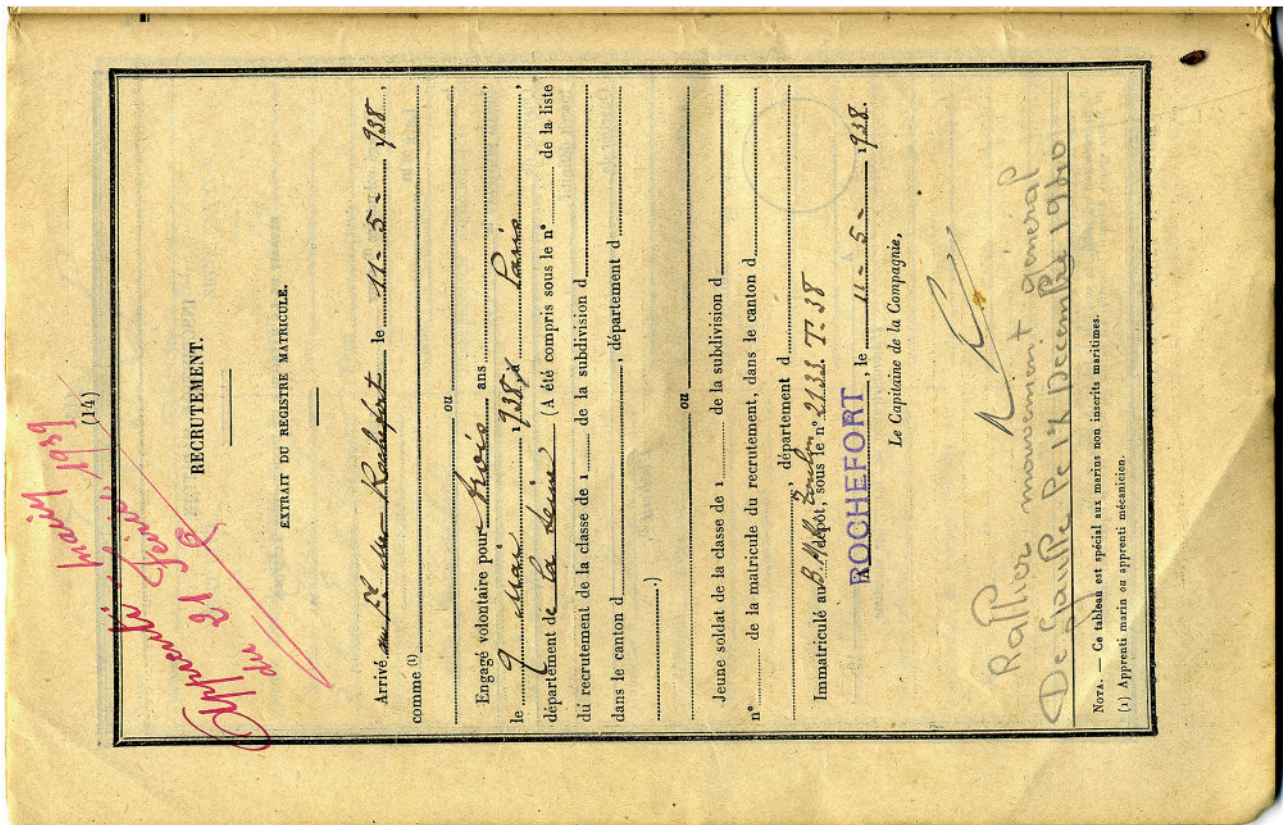 (14)
Apprenti marin
du 21 Février 1939
RECRUTEMENT.
EXTRAIT DU REGISTRE MATRICULE.
Arrivé au Rochefort le 11-5- 1938,
comme (1)
ou
Engagé volontaire pour trois ans,
le 9 Mai 1938, à Paris,
département de la Seine (A été compris sous le n° de la liste
du recrutement de la classe de 1 de la subdivision d
dans le canton d, département d
.)
ou
Jeune soldat de la classe de 1 de la subdivision d
n° de la matricule du recrutement, dans le canton d
, département d
Immatriculé au dépôt, Toulon sous le n° 2133. T-38
A ROCHEFORT, le 11-5- 1938.
Le Capitaine de la Compagnie,
Rallier mouvement général
De Gaulle le 1er Decembre 1940
NOTA. — Ce tableau est spécial aux marins non inscrits maritimes.
(1) Apprenti marin ou apprenti mécanicien.